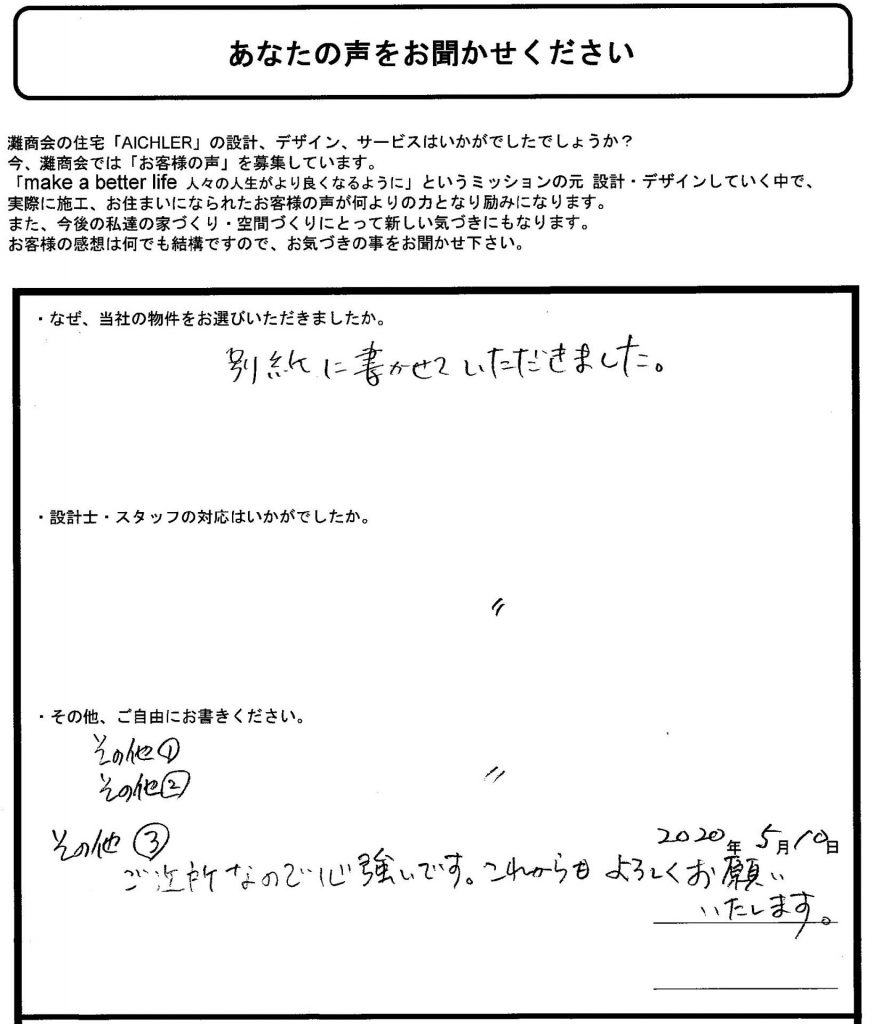 あなたの声をお聞かせください
灘商会の住宅「AICHLER」の設計、デザイン、サービスはいかがでしたでしょうか？
今、灘商会では「お客様の声」を募集しています。
「make a better life 人々の人生がより良くなるように」というミッションの元 設計・デザインしていく中で、
実際に施工、お住まいになられたお客様の声が何よりの力となり励みになります。
また、今後の私達の家づくり・空間づくりにとって新しい気づきにもなります。
お客様の感想は何でも結構ですので、お気づきの事をお聞かせ下さい。
・なぜ、当社の物件をお選びいただきましたか。
別紙に書かせていただきました。
・設計士・スタッフの対応はいかがでしたか。
〃
・その他、ご自由にお書きください。
その他①
その他② 〃
その他③
2020年5月10日
ご近所なので心強いです。これからもよろしくお願い
いたします。